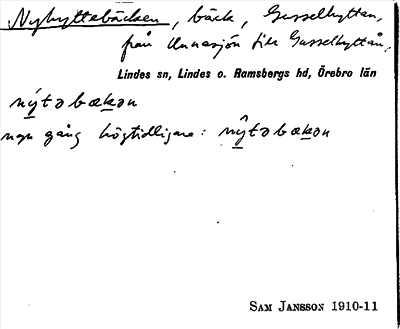 Nyhyttebäcken, bäck, Gusselhyttan,
från Unnasjön till Gusselhyttån,
Lindes sn, Lindes o. Ramsbergs hd, Örebro län
nýtəbækən
ngn gång högtidligare: nŷtəbækən
SAM JANSSON 1910-11